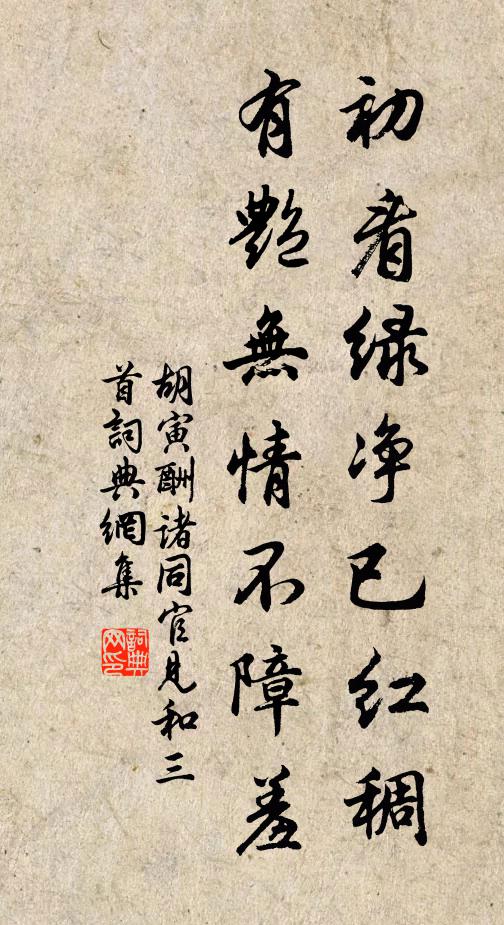 初看绿净已红稠
有艷無情不障羞
胡寅酬诸同官見和三
首詞典網集
詞典
网印